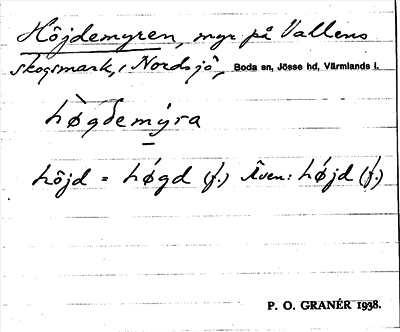 Höjdemyren, myr på Vallens
skogsmark, i Nordsjö, Boda sn, Jösse hd, Värmlands l.
hø̀gdemýra
höjd = hǿgd (f.) Även: hǿjd (f.)
P. O. GRANÉR 1938.